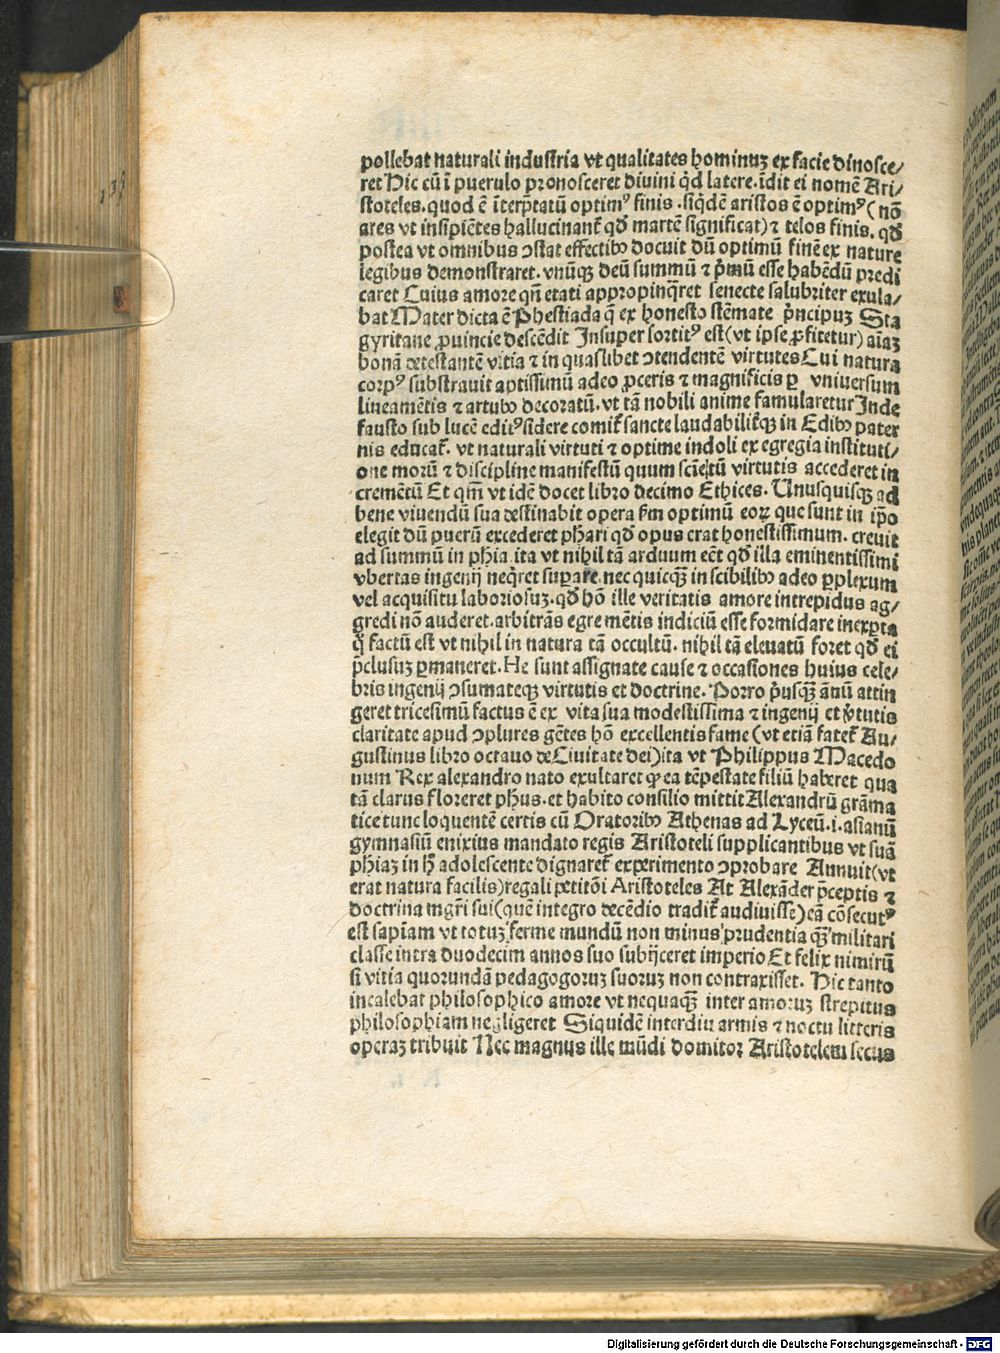 pollebat naturali industria vt qualitates hominuꝫ ex facie dinosce/
ret Hic cū ī puerulo pronosceret diuini qͥd latere. īdit ei nomē Ari/
stoteles. quod ē īterp̄tatū optimꝰ finis. siqͥdē aristos ē optimꝰ (nō
ares vt insipiētes hallucinant̄ qd̄ martē significat) ⁊ telos finis. qd̄
postea vt omnibus ↄstat effectibꝰ docuit dū optimū finē ex nature
legibus demonstraret. vnūqꝫ deū summū ⁊ pͥmū esse habēdū predi
caret Cuius amore qn̄ etati appropinq̄ret senecte salubriter exula/
bat Mater dicta ē Phestiada q̄ ex honesto stēmate pͥncipuꝫ Sta
gyritane ꝓuincie descēdit Insuper sortitꝰ est (vt ipse ꝓfitetur) aīaꝫ
bonā detestantē vitia ⁊ in quaslibet ↄtendentē virtutes Cui natura
corpꝰ substrauit aptissimū adeo ꝓceris ⁊ magnificis ꝑ vniuersum
lineamētis ⁊ artubꝰ decoratū. vt tā nobili anime famularetur Inde
fausto sub lucē editꝰ sidere comit̄ sancte laudabilit̄qꝫ in Edibꝰ pater
nis educat̄. vt naturali virtuti ⁊ optime indoli ex egregia instituti/
one morū ⁊ discipline manifestū quum sciētū virtutis accederet in
cremētū Et qm̄ vt idē docet libro decimo Ethices. Unusquisqꝫ ad
bene viuendū sua destinabit opera fm̄ optimū eoꝝ que sunt in ip̄o
elegit dū puerū excederet ph̄ari qd̄ opus erat honestissimum. creuit
ad summū in ph̄ia ita vt nihil tā arduum eēt qd̄ illa eminentissimi
vbertas ingenij neqͥret suꝑare. nec quicqͣꝫ in scibilibꝰ adeo ꝑplexum
vel acquisitu laboriosuꝫ. qd̄ hō ille veritatis amore intrepidus ag/
gredi nō auderet. arbitrās egre mētis indiciū esse formidare inexꝑta
qͦ factū est vt nihil in natura tā occultū. nihil tā eleuatū foret qd̄ ei
p̄clusuꝫ ꝑmaneret. He sunt assignate cause ⁊ occasiones huius cele/
bris ingenij ↄsumateqꝫ virtutis et doctrine. Porro pͥusqͣꝫ ānū attin
geret tricesimū factus ē ex vita sua modestissima ⁊ ingenij et v̓tutis
claritate apud ↄplures gētes hō excellentis fame (vt etiā fatet̄ Au/
gustinus libro octauo de Ciuitate dei) ita vt Philippus Macedo
num Rex alexandro nato exultaret ꝙ ea tēpestate filiū haberet qua
tā clarus floreret ph̄us. et habito consilio mittit Alexandrū grāma
tice tunc loquentē certis cū Oratoribꝰ Athenas ad Lyceū. i. asianū
gymnasiū enixius mandato regis Aristoteli supplicantibus vt suā
ph̄iaꝫ in h̄ adolescente dignaret̄ experimento ↄprobare Annuit (vt
erat natura facilis) regali petitōi Aristoteles At Alexāder p̄ceptis ⁊
doctrina mgr̄i sui (quē integro decēdio tradit̄ audiuisse) eā cōsecutꝰ
est sapiam vt totuꝫ ferme mundū non minus prudentia qͣꝫ militari
classe intra duodecim annos suo subijceret imperio Et felix nimirū
si vitia quorundā pedagogoruꝫ suoruꝫ non contraxisset. Hic tanto
incalebat philosophico amore vt nequaqͣꝫ inter amoruꝫ strepitus
philosophiam negligeret Siquidē interdiu armis ⁊ noctu litteris
operaꝫ tribuit Nec magnus ille mūdi domitor Aristotelem secus
Digitalisierung gefördert durch die Deutsche Forschungsgemeinschaft - DFG